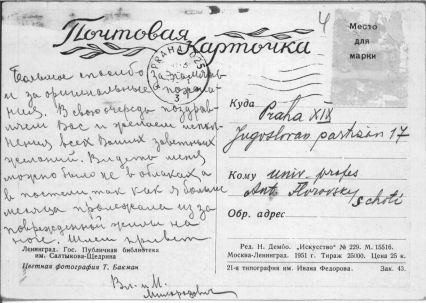 Почтовая
Карточка
4
Место
для
марки
PRAHA 025
Большое спасибо за память
и за оригинальные пожела-
ния. В свою очередь поздрав-
ляем Вас и желаем испол-
нения всех Ваших заветных
желаний. Видеть меня
можно было не в облаках а
в постели так как я больше
месяца пролежала из за
повреждённой жилы на
ноге. Шлем привет
Вл. и М.
Куда Praha XIX
Jugoslovan partisán 17
Кому univ. profes
Ant. Florovsky
Обр. адрес
Ленинград. Гос. Публичная библиотека
им. Салтыкова-Щедрина
Цветная фотография Т. Бакман
Ред. Н. Дембо. „Искусство" № 229. М. 15516.
Москва-Ленинград. 1951 г. Тираж 25000. Цена 25 к.
21-я типография им. Ивана Федорова. Зак. 43.